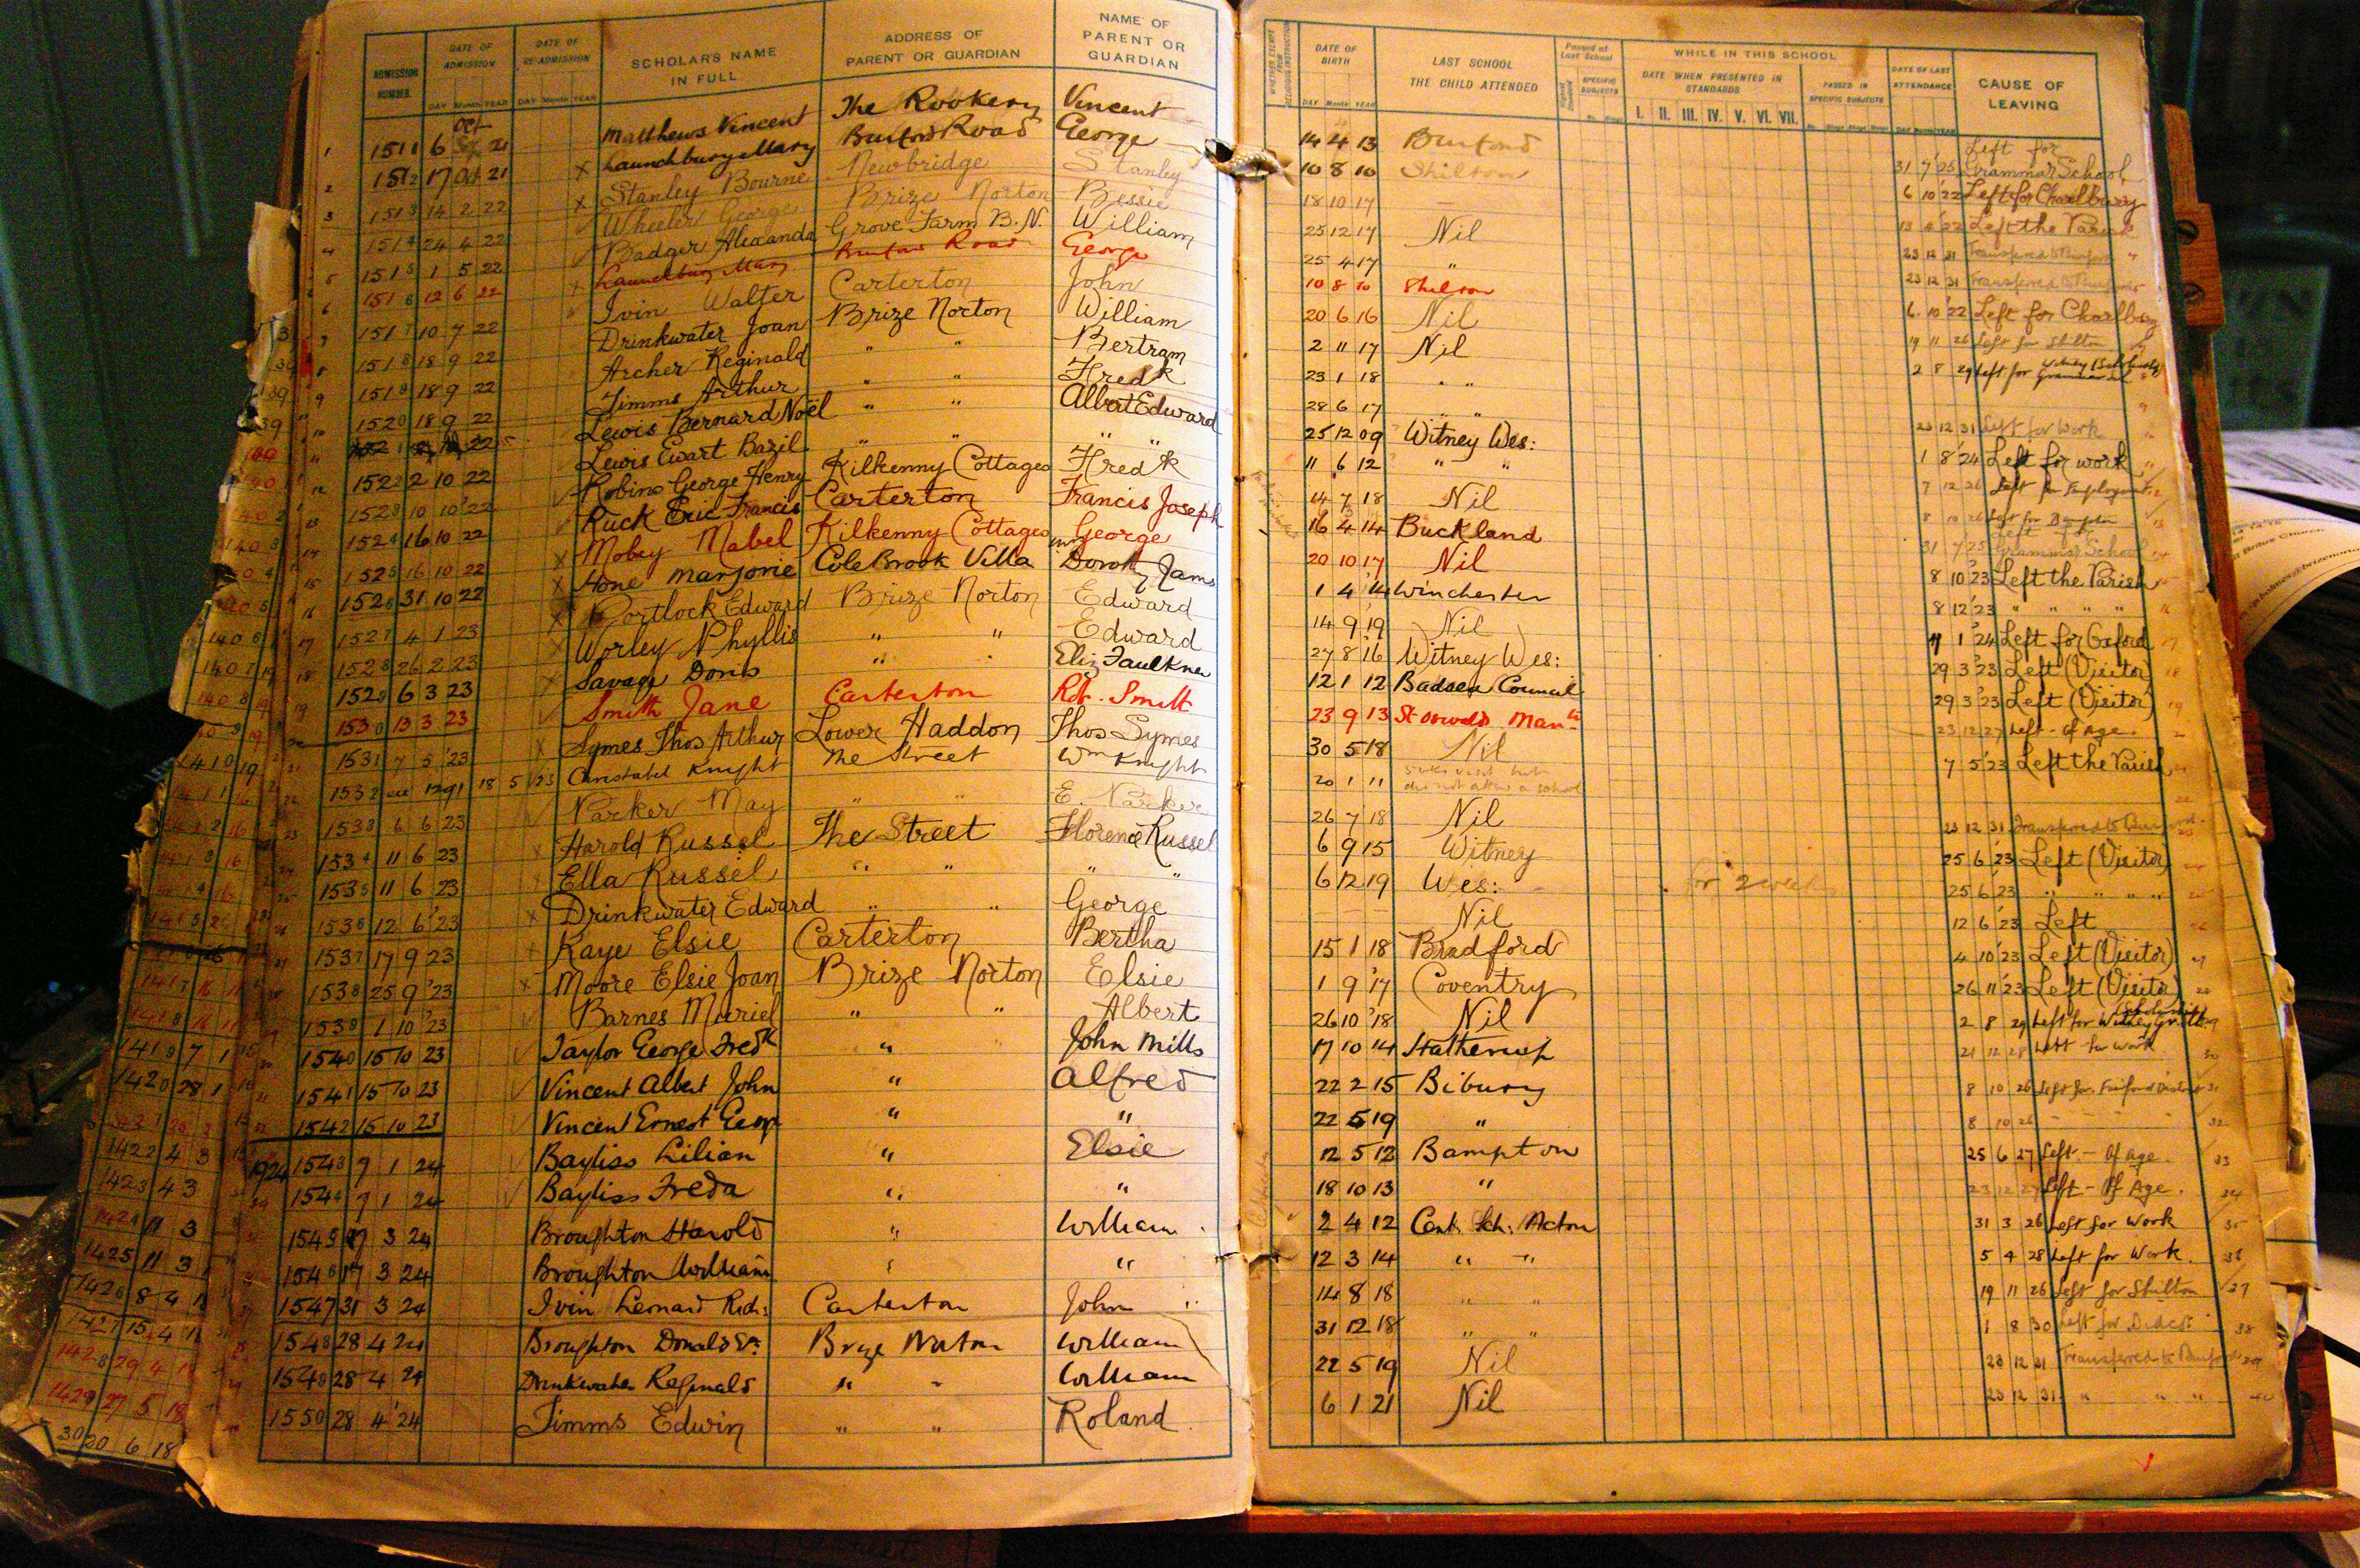 ADMISSION NUMBER
DATE OF ADMISSION
DAY Month YEAR
DATE OF RE-ADMISSION
DAY Month YEAR
SCHOLAR'S NAME IN FULL
ADDRESS OF PARENT OR GUARDIAN
NAME OF PARENT OR GUARDIAN
1 1511 6 Oct 21 Matthews Vincent The Rookery Vincent
2 1512 17 Oct 21 x Launchbury Mary Burford Road George
3 1513 14 2 22 x Stanley Bourne Newbridge Stanley
4 1514 24 4 22 Wheeler George Brize Norton Bessie
5 1515 1 5 22 Badger Alexanda Grove Farm B.N. William
6 1516 12 6 22 x Launchbury Mary Burford Road George
7 1517 10 7 22 Ivin Walter Carterton John
8 1518 18 9 22 Drinkwater Joan Brize Norton William
9 1519 18 9 22 Archer Reginald " " Bertram
10 1520 18 9 22 Timms Arthur " " Fredk
11 22 Lewis Bernard Noël " " Albert Edward
12 1522 2 10 22 Lewis Ewart Bazil " " " "
13 1523 10 10 '22 Robins George Henry Kilkenny Cottages Fredk
14 1524 16 10 22 Ruck Eric Francis Carterton Francis Joseph
15 1525 16 10 22 x Mobey Mabel Kilkenny Cottages George
16 1526 31 10 22 x Hone Marjorie Cole Brook Villa Doroty Jams
17 1527 4 1 23 x Portlock Edward Brize Norton Edward
18 1528 26 2 23 x Worley Phyllis " " Edward
19 1529 6 3 23 x Savage Doris " " Eliz Faulkner
1530 13 3 23 Smith Jane Carterton Rbt. Smith
21 1531 7 5 '23 x Symes Thos Arthur Lower Haddon Thos Symes
22 1532 18 5 23 Constabel Knight The Street Wm Knight
23 1533 6 6 23 Parker May " " E. Parker
1534 11 6 23 x Harold Russel The Street Florence Russel
25 1535 11 6 23 x Ella Russel " " " "
1536 12 6 '23 x Drinkwater Edward " " George
1537 17 9 23 x Kaye Elsie Carterton Bertha
1538 25 9 '23 x Moore Elsie Joan Brize Norton Elsie
1539 1 10 '23 Barnes Muriel " " Albert
1540 15 10 23 Taylor George Fredk " John Mills
1541 15 10 23 Vincent Albert John " Alfred
1542 15 10 23 Vincent Ernest Geog " "
1924 1543 9 1 24 Bayliss Lilian " Elsie
1544 9 1 24 Bayliss Freda " "
1545 17 3 24 Broughton Harold " William
1546 17 3 24 Broughton William " "
1547 31 3 24 Ivin Leonard Rich: Carterton John
1548 28 4 24 Broughton Donald Brize Norton William
1549 28 4 24 Drinkwater Reginald " " William
1550 28 4 '24 Timms Edwin " " Roland
DATE OF BIRTH
DAY Month YEAR
LAST SCHOOL THE CHILD ATTENDED
Passed at Last School
SPECIFIC SUBJECTS
WHILE IN THIS SCHOOL
DATE WHEN PRESENTED IN STANDARDS
I. II. III. IV. V. VI. VII.
PASSED IN SPECIFIC SUBJECTS
DATE OF LAST ATTENDANCE
CAUSE OF LEAVING
14 4 13 Burford 31 7 '25 Left for Grammar School
10 8 10 Shilton 6 10 '22 Left for Charlbury
18 10 17 Left the Parish
25 12 17 Nil 23 12 31 Transfered to Burford
25 4 17 " 23 12 31 Transfered to Burford
10 8 10 Shilton 6 10 '22 Left for Charlbury
20 6 16 Nil 19 11 26 Left for Shilton
2 11 17 Nil 2 8 29 Left for Witney Grammar
23 1 18 " "
28 6 17 " " 23 12 31 Left for Work
25 12 09 Witney Wes: 1 8 '24 Left for work
11 6 12 " " 7 12 26 Left for Employment
14 7 18 Nil 8 10 26 Left for Bampton
16 4 14 Buckland 31 7 '25 Left for Grammar School
20 10 17 Nil 8 10 '23 Left the Parish
1 4 '14 Winchester 8 12 '23 " " " "
14 9 '19 Nil 11 1 '24 Left for Oxford 17
27 8 '16 Witney Wes: 29 3 '23 Left (Visitor) 18
12 1 12 Badsea Council 29 3 '23 Left (Visitor) 19
23 9 13 St Oswald Man 23 12 27 Left - Of Age.
30 5 18 Nil 7 5 '23 Left the Parish
20 1 11 did not attend a school
26 7 18 Nil 23 12 31 Transfered to Burford
6 9 15 Witney 25 6 '23 Left (Visitor)
6 12 19 Wes: for 2 weeks 25 6 '23 " " " "
Nil 12 6 '23 Left
15 1 18 Bradford 4 10 '23 Left (Visitor)
1 9 '17 Coventry 26 11 '23 Left (Visitor)
26 10 '18 Nil 2 8 29 Left for Witney
17 10 14 Hatherup 21 12 28 Left for work 30
22 2 15 Bibury 8 10 26 Left for Fairford District 31
22 5 19 " 8 10 26 32
12 5 12 Bampton 25 6 27 Left. - Of Age 33
18 10 13 " 23 12 27 Left - Of Age. 34
2 4 12 Cent. Sch. Acton 31 3 26 Left for Work 35
12 3 14 " " 5 4 28 Left for Work. 36
14 8 18 " " 19 11 26 Left for Shilton 37
31 12 18 " " 1 8 30 Left for Didcot 38
22 5 19 Nil 23 12 31 Transfered to Burford 39
6 1 21 Nil 23 12 31 " " " 40